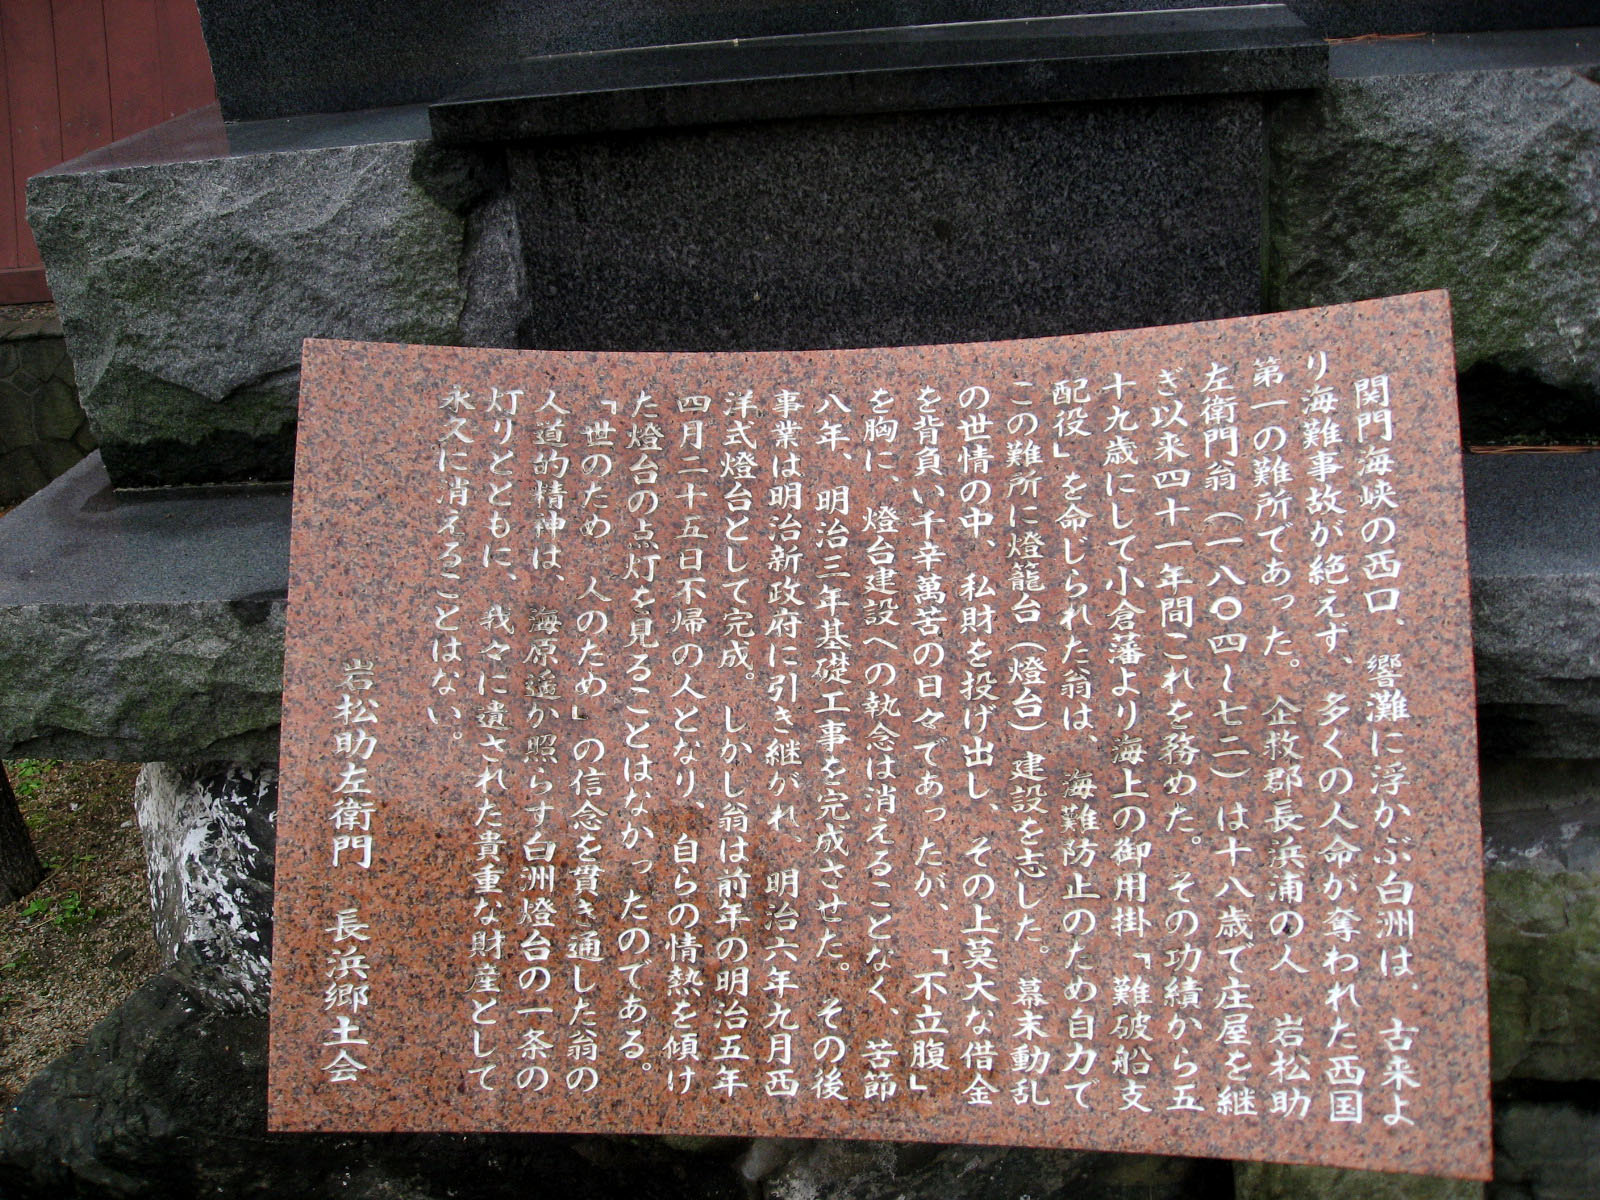 関門海峡の西口、響灘に浮かぶ白洲は、古来よ
り海難事故が絶えず、多くの人命が奪われた西国
第一の難所であった。企救郡長浜浦の人 岩松助
左衛門翁(一八〇四〜七二)は十八歳で庄屋を継
ぎ以来四十一年間これを務めた。その功績から五
十九歳にして小倉藩より海上の御用掛「難破船支
配役」を命じられた翁は、海難防止のため自力で
この難所に燈籠台(燈台)建設を志した。幕末動乱
の世情の中、私財を投げ出し、その上莫大な借金
を背負い千辛萬苦の日々であったが、「不立腹」
を胸に、燈台建設への執念は消えることなく、苦節
八年、明治三年基礎工事を完成させた。その後
事業は明治新政府に引き継がれ、明治六年九月西
洋式燈台として完成。しかし翁は前年の明治五年
四月二十五日不帰の人となり、自らの情熱を傾け
た燈台の点灯を見ることはなかったのである。
「世のため 人のため」の信念を貫き通した翁の
人道的精神は、海原遥か照らす白洲燈台の一条の
灯りとともに、我々に遺された貴重な財産として
永久に消えることはない。
岩松助左衛門 長浜郷土会